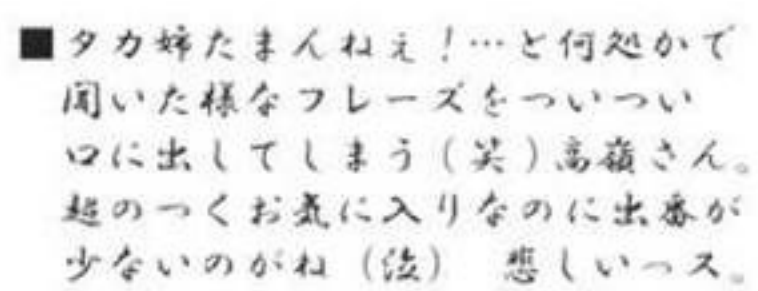 ■タカ姉たまんねぇ！…と何処かで
聞いた様なフレーズをついつい
口に出してしまう（笑）高嶺さん。
超のつくお気に入りなのに出番が
少ないのがね（泣） 悲しいっス。